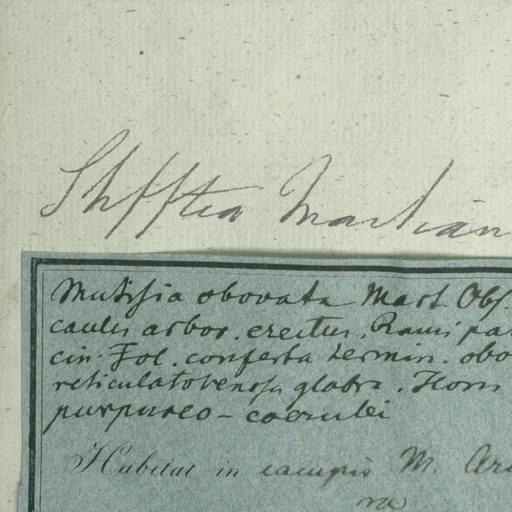 Shfftia Martian
Mutisia obovata Mart. Obs.
caulis arbor. erectus. Rami pa
cin. Fol. conferta termin. obo
reticulatovenosa glabr. Flores
purpureo-coerulei
Habitat in campis M. Ara
ra